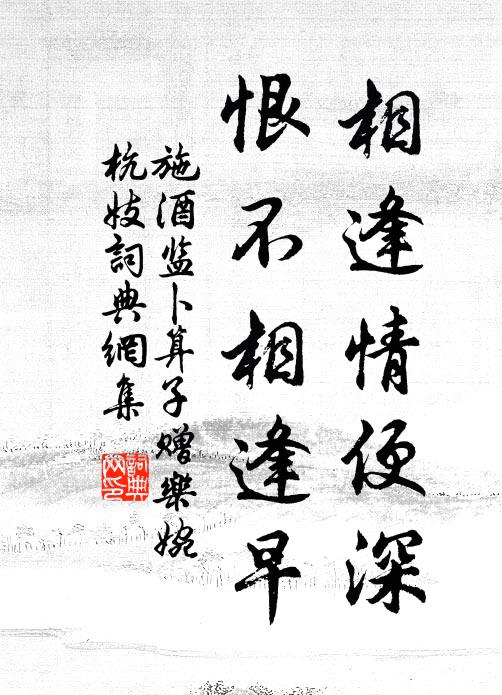 相逢情便深
恨不相逢早
施酒監卜算子贈樂婉
杭妓詞典網集
詞典網印